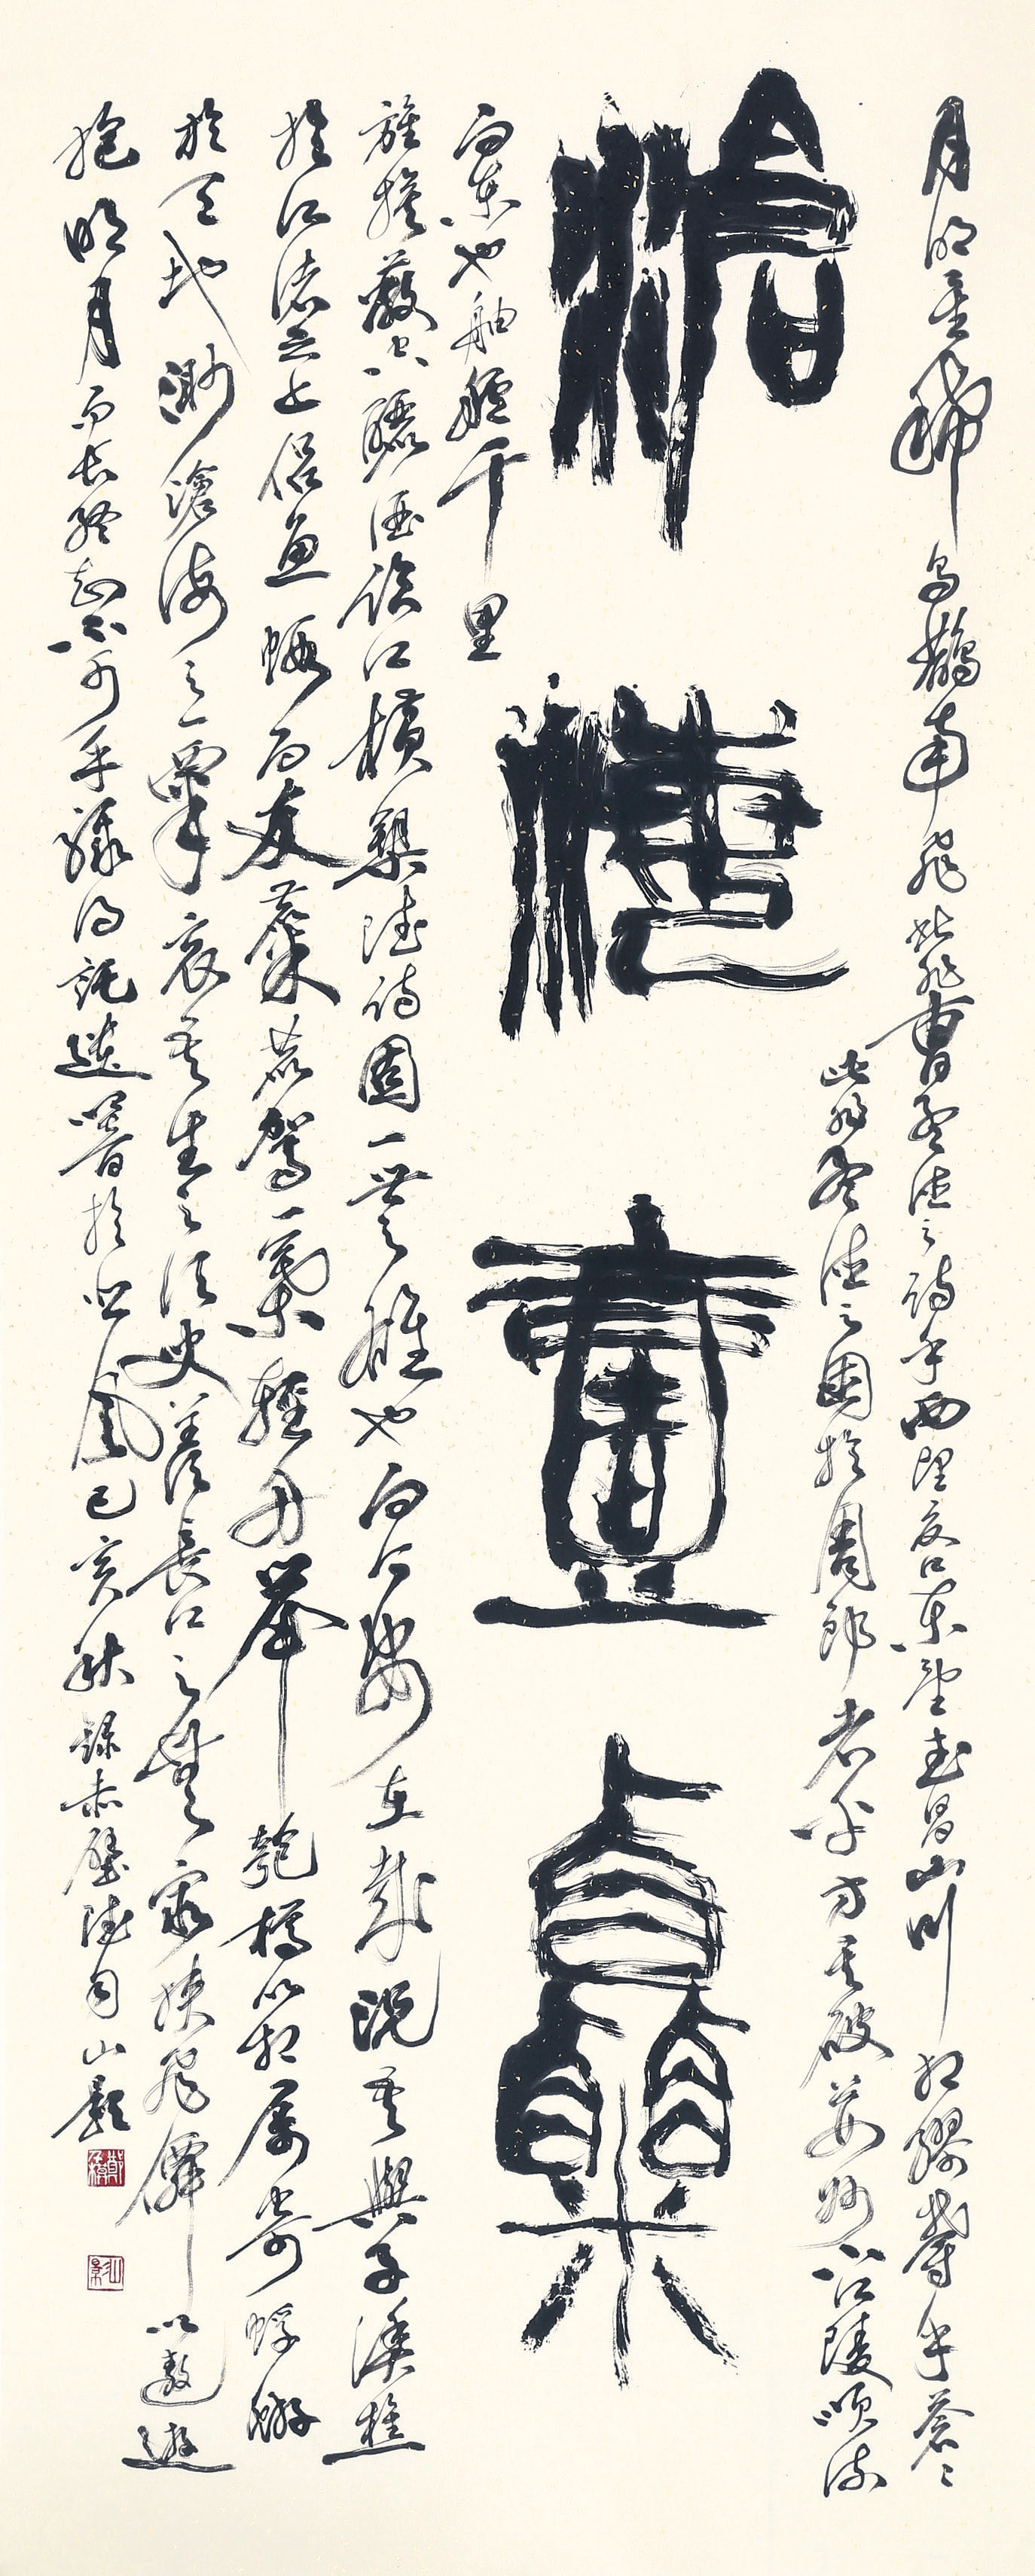 月明星稀烏鵲南飛此非曹孟德之詩乎西望夏口東望武昌山川相繆鬱乎蒼〻
此非孟德之困於周郎者乎方其破荊州下江陵順流
滄海壹粟
而東也舳艫千里
旌旗蔽空釃酒臨江橫槊賦詩固一世之雄也而今安在哉況吾與子漁樵
於江渚之上侶魚蝦而友麋鹿駕一葉輕舟舉匏樽以相屬寄蜉蝣
於天地渺滄海之一粟哀吾生之須臾羨長江之無窮挾飛僊以遨遊
抱明月而長終知不可乎驟得託遺響於悲風己亥秋錄赤壁賦句山影
山影